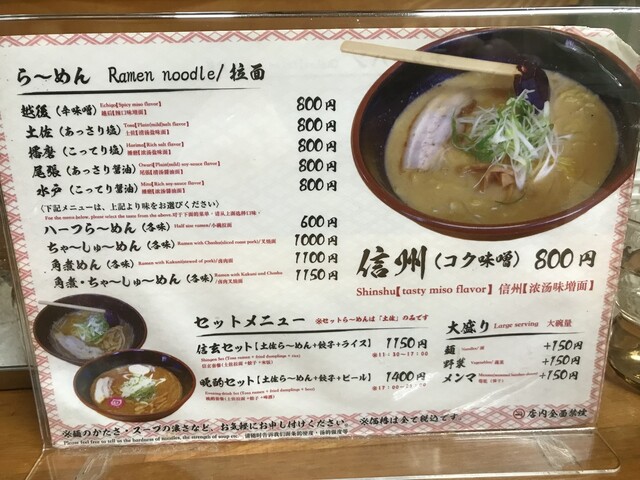 ら～めん Ramen noodle/ 拉面
越後（辛味噌） Echigo【Spicy miso flavor】 800円
土佐（あっさり塩） Tosa【Plain(mild)salt flavor】 800円
播磨（こってり塩） Harima【Rich salt flavor】 800円
尾張（あっさり醤油） Owari【Plain(mild) soy-sauce flavor】 800円
水戸（こってり醤油） Mito【Rich soy-sauce flavor】 800円
（下記メニューは、上記より味をお選びください）
For the menu below, please select the taste from the above.
ハーフら～めん（各味） Half size ramen/小碗拉面 600円
ちゃ～しゅ～めん（各味） Ramen with Chashu(sliced roast pork)/叉烧面 1000円
角煮めん（各味） Ramen with Kakuni(stewed of pork)/卤肉面 1100円
角煮・ちゃ～しゅ～めん（各味） Ramen with Kakuni and Chashu 1150円
信州（コク味噌） 800円
Shinshu【tasty miso flavor】 信州【浓汤味增面】
セットメニュー ※セットら～めんは「土佐」のみです
信玄セット【土佐ら～めん+餃子+ライス】 1150円
Shingen Set (Tosa ramen + fried dumplings + rice)
※11:30～17:00
晩酌セット【土佐ら～めん+餃子+ビール】 1400円
大盛り Large serving 大碗量
麺 Noodles/ 面 +150円
野菜 Vegetables/ 蔬菜 +150円
メンマ +150円
※麺のかたさ・スープの濃さなど、お気軽にお申し付けください。
Please feel free to tell us the hardness of noodles, the strength of soup etc.
※価格は全て税込です。
店内全面禁煙